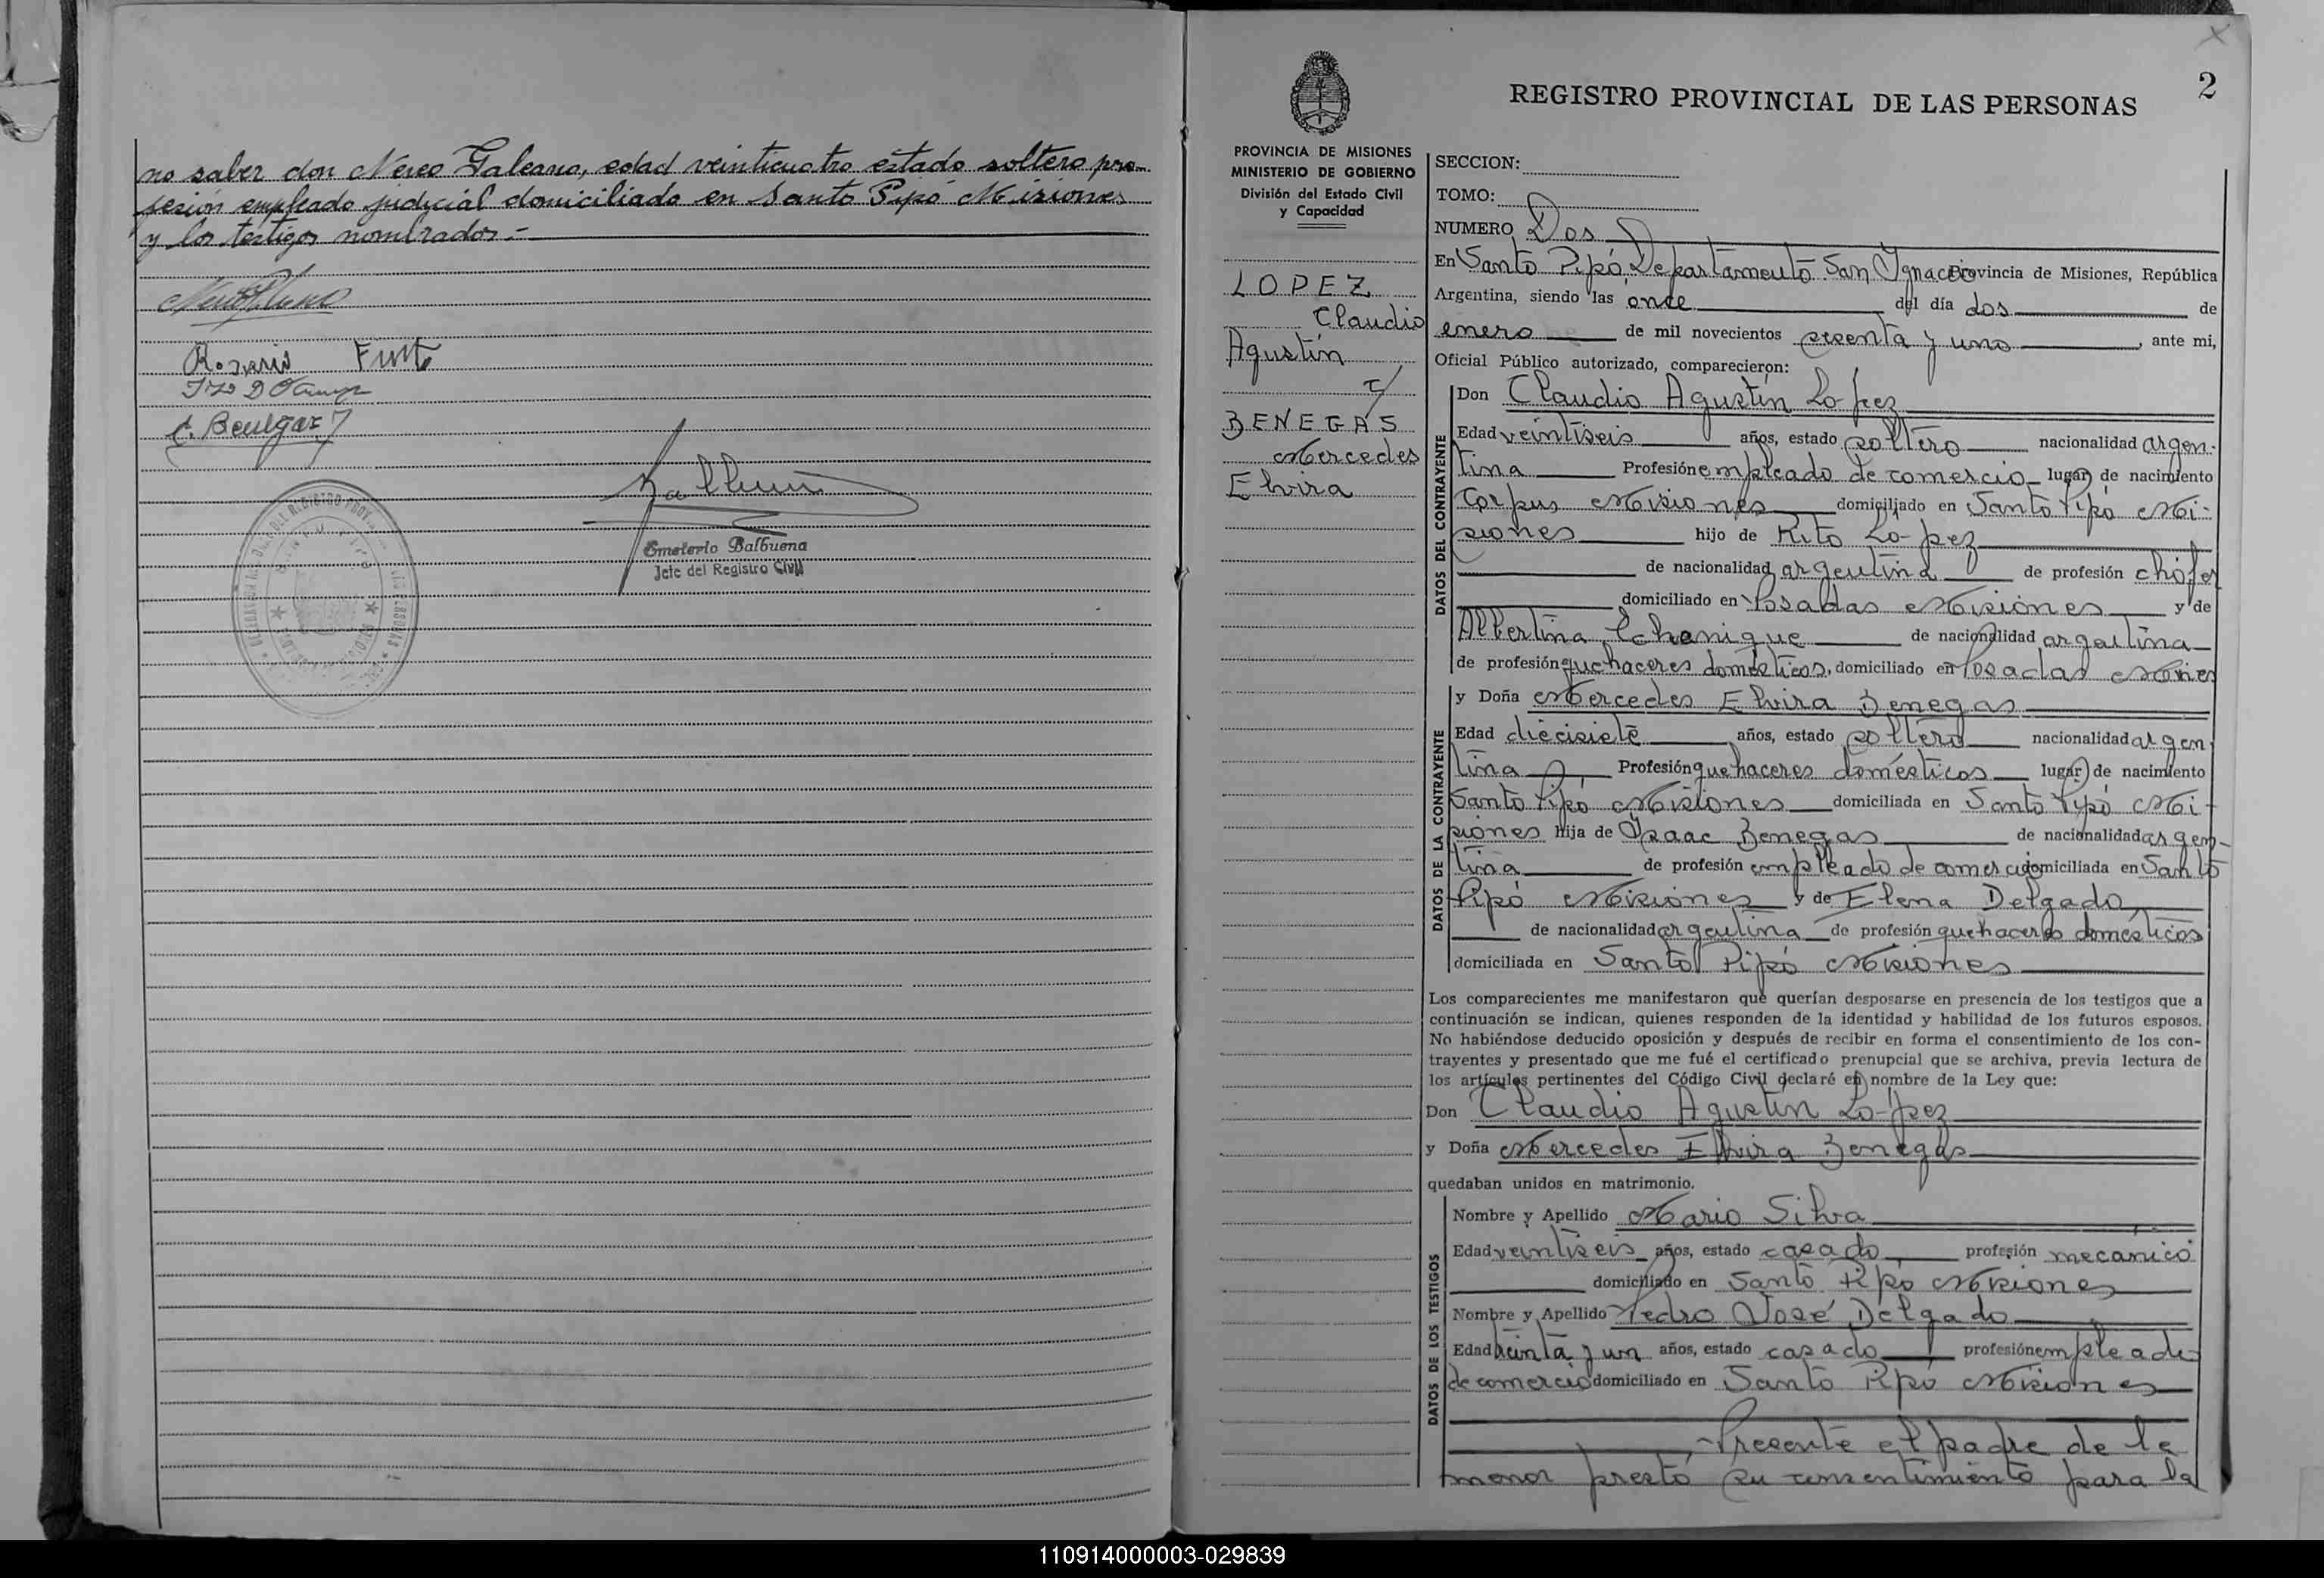 no saber don Nereo Galeano, edad veinticuatro estado soltero pro-
fesión empleado judicial domiciliado en Santo Pipó Misiones
y los testigos nombrados.-
Rosario
C. Beulgas
Emeterio Balbuena
Jefe del Registro Civil
2
REGISTRO PROVINCIAL DE LAS PERSONAS
PROVINCIA DE MISIONES
MINISTERIO DE GOBIERNO
División del Estado Civil
y Capacidad
LOPEZ
Claudio
Agustín
c/
BENEGAS
Mercedes
Elvira
SECCION:
TOMO:
NUMERO Dos
En Santo Pipó Departamento San Ignacio Provincia de Misiones, República
Argentina, siendo las once del día dos de
enero de mil novecientos sesenta y uno, ante mi,
Oficial Público autorizado, comparecieron:
DATOS DEL CONTRAYENTE
Don Claudio Agustín López
Edad veintiseis años, estado soltero nacionalidad argen-
tina Profesión empleado de comercio lugar de nacimiento
Corpus Misiones domiciliado en Santo Pipó Mi-
siones hijo de Rito López
de nacionalidad argentina de profesión chófer
domiciliado en Posadas Misiones y de
Albertina Echanique de nacionalidad argentina
de profesión quehaceres domésticos, domiciliado en Posadas Misiones
DATOS DE LA CONTRAYENTE
y Doña Mercedes Elvira Benegas
Edad diecisiete años, estado soltera nacionalidad argen
tina Profesión quehaceres domésticos lugar de nacimiento
Santo Pipó Misiones domiciliada en Santo Pipó Mi-
siones hija de Isaac Benegas de nacionalidad argen-
tina de profesión empleado de comercio domiciliada en Santo
Pipó Misiones y de Elena Delgado
de nacionalidad argentina de profesión quehaceres domésticos
domiciliada en Santo Pipó Misiones
Los comparecientes me manifestaron que querían desposarse en presencia de los testigos que a
continuación se indican, quienes responden de la identidad y habilidad de los futuros esposos.
No habiéndose deducido oposición y después de recibir en forma el consentimiento de los con-
trayentes y presentado que me fué el certificado prenupcial que se archiva, previa lectura de
los artículos pertinentes del Código Civil declaré en nombre de la Ley que:
Don Claudio Agustín López
y Doña Mercedes Elvira Benegas
quedaban unidos en matrimonio.
DATOS DE LOS TESTIGOS
Nombre y Apellido Mario Silva
Edad veintiseis años, estado casado profesión mecanico
domiciliado en Santo Pipó Misiones
Nombre y Apellido Pedro José Delgado
Edad treinta y un años, estado casado profesión empleado
de comercio domiciliado en Santo Pipó Misiones
Presente el padre de la
menor prestó su consentimiento para la
110914000003-029839